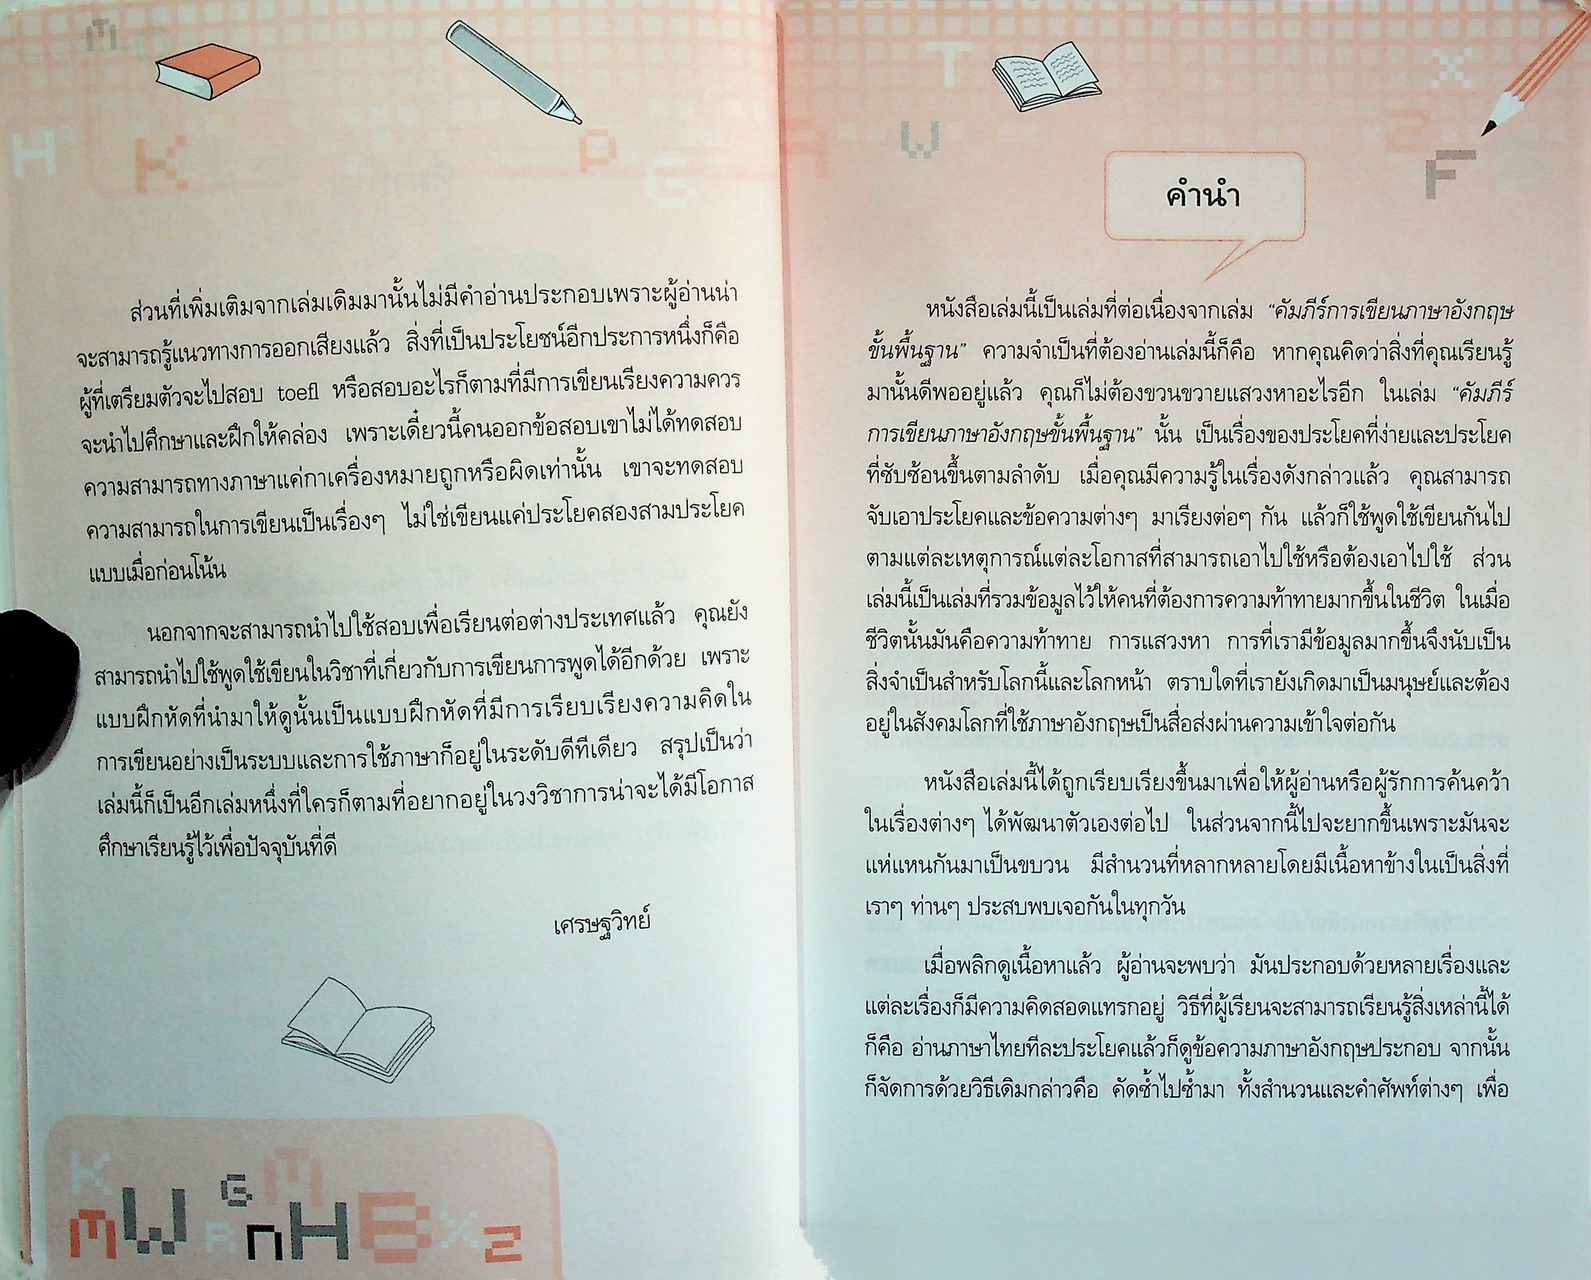 ส่วนที่เพิ่มเติมจากเล่มเดิมมานั้นไม่มีคำอ่านประกอบเพราะผู้อ่านน่า
จะสามารถรู้แนวทางการออกเสียงแล้ว สิ่งที่เป็นประโยชน์อีกประการหนึ่งก็คือ
ผู้ที่เตรียมตัวจะไปสอบ toefl หรือสอบอะไรก็ตามที่มีการเขียนเรียงความควร
จะนำไปศึกษาและฝึกให้คล่อง เพราะเดี๋ยวนี้คนออกข้อสอบเขาไม่ได้ทดสอบ
ความสามารถทางภาษาแค่กาเครื่องหมายถูกหรือผิดเท่านั้น เขาจะทดสอบ
ความสามารถในการเขียนเป็นเรื่องๆ ไม่ใช่เขียนแค่ประโยคสองสามประโยค
แบบเมื่อก่อนโน้น
นอกจากจะสามารถนำไปใช้สอบเพื่อเรียนต่อต่างประเทศแล้ว คุณยัง
สามารถนำไปใช้พูดใช้เขียนในวิชาที่เกี่ยวกับการเขียนการพูดได้อีกด้วย เพราะ
แบบฝึกหัดที่นำมาให้ดูนั้นเป็นแบบฝึกหัดที่มีการเรียบเรียงความคิดใน
การเขียนอย่างเป็นระบบและการใช้ภาษาก็อยู่ในระดับดีทีเดียว สรุปเป็นว่า
เล่มนี้ก็เป็นอีกเล่มหนึ่งที่ใครก็ตามที่อยากอยู่ในวงวิชาการน่าจะได้มีโอกาส
ศึกษาเรียนรู้ไว้เพื่อปัจจุบันที่ดี
เศรษฐวิทย์
คำนำ
หนังสือเล่มนี้เป็นเล่มที่ต่อเนื่องจากเล่ม “คัมภีร์การเขียนภาษาอังกฤษ
ขั้นพื้นฐาน” ความจำเป็นที่ต้องอ่านเล่มนี้ก็คือ หากคุณคิดว่าสิ่งที่คุณเรียนรู้
มานั้นดีพออยู่แล้ว คุณก็ไม่ต้องขวนขวายแสวงหาอะไรอีก ในเล่ม “คัมภีร์
การเขียนภาษาอังกฤษขั้นพื้นฐาน” นั้น เป็นเรื่องของประโยคที่ง่ายและประโยค
ที่ซับซ้อนขึ้นตามลำดับ เมื่อคุณมีความรู้ในเรื่องดังกล่าวแล้ว คุณสามารถ
จับเอาประโยคและข้อความต่างๆ มาเรียงต่อๆ กัน แล้วก็ใช้พูดใช้เขียนกันไป
ตามแต่ละเหตุการณ์แต่ละโอกาสที่สามารถเอาไปใช้หรือต้องเอาไปใช้ ส่วน
เล่มนี้เป็นเล่มที่รวมข้อมูลไว้ให้คนที่ต้องการความท้าทายมากขึ้นในชีวิต ในเมื่อ
ชีวิตนั้นมันคือความท้าทาย การแสวงหา การที่เรามีข้อมูลมากขึ้นจึงนับเป็น
สิ่งจำเป็นสำหรับโลกนี้และโลกหน้า ตราบใดที่เรายังเกิดมาเป็นมนุษย์และต้อง
อยู่ในสังคมโลกที่ใช้ภาษาอังกฤษเป็นสื่อส่งผ่านความเข้าใจต่อกัน
หนังสือเล่มนี้ได้ถูกเรียบเรียงขึ้นมาเพื่อให้ผู้อ่านหรือผู้รักการค้นคว้า
ในเรื่องต่างๆ ได้พัฒนาตัวเองต่อไป ในส่วนจากนี้ไปจะยากขึ้นเพราะมันจะ
แห่แหนกันมาเป็นขบวน มีสำนวนที่หลากหลายโดยมีเนื้อหาข้างในเป็นสิ่งที่
เราๆ ท่านๆ ประสบพบเจอกันในทุกวัน
เมื่อพลิกดูเนื้อหาแล้ว ผู้อ่านจะพบว่า มันประกอบด้วยหลายเรื่องและ
แต่ละเรื่องก็มีความคิดสอดแทรกอยู่ วิธีที่ผู้เรียนจะสามารถเรียนรู้สิ่งเหล่านี้ได้
ก็คือ อ่านภาษาไทยทีละประโยคแล้วก็ดูข้อความภาษาอังกฤษประกอบ จากนั้น
ก็จัดการด้วยวิธีเดิมกล่าวคือ คัดซ้ำไปซ้ำมา ทั้งสำนวนและคำศัพท์ต่างๆ เพื่อ